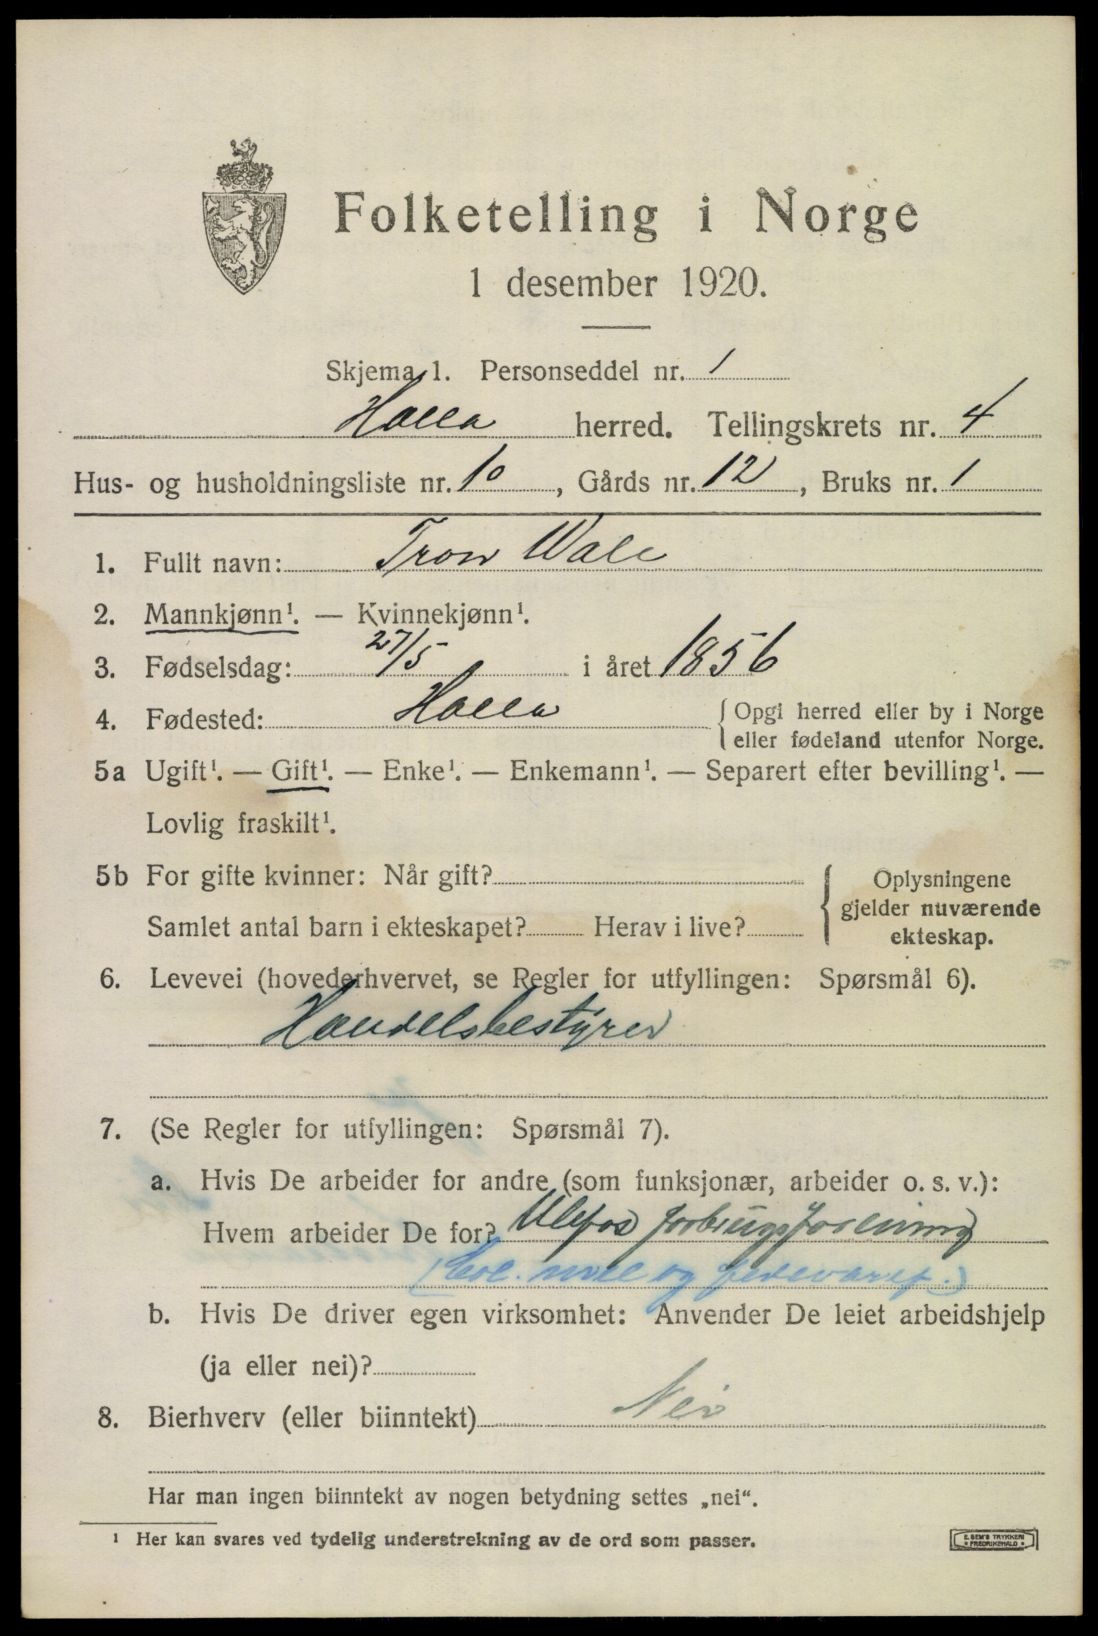 Folketelling i Norge
1 desember 1920.
Skjema 1. Personseddel nr. 1
Holla herred. Tellingskrets nr. 4
Hus- og husholdningsliste nr. 10, Gårds nr. 12, Bruks nr. 1
1. Fullt navn: Tron Wale
2. Mannkjønn¹. — Kvinnekjønn¹.
3. Fødselsdag: 27/5 i året 1856
4. Fødested: Holla { Opgi herred eller by i Norge
eller fødeland utenfor Norge.
5a Ugift¹. — Gift¹. — Enke¹. — Enkemann¹. — Separert efter bevilling¹. —
Lovlig fraskilt¹.
5b For gifte kvinner: Når gift?
Samlet antal barn i ekteskapet? Herav i live?
{ Oplysningene
gjelder nuværende
ekteskap.
6. Levevei (hovederhvervet, se Regler for utfyllingen: Spørsmål 6).
Handelsbestyrer
7. (Se Regler for utfyllingen: Spørsmål 7).
a. Hvis De arbeider for andre (som funksjonær, arbeider o. s. v.):
Hvem arbeider De for? Ulefos forbrugsforening
(Col. mel og fedevaref.)
b. Hvis De driver egen virksomhet: Anvender De leiet arbeidshjelp
(ja eller nei)?
8. Bierhverv (eller biinntekt) Nei
Har man ingen biinntekt av nogen betydning settes „nei“.
¹ Her kan svares ved tydelig understrekning av de ord som passer.
E. SEM'S TRYKKERI
FREDRIKSHALD